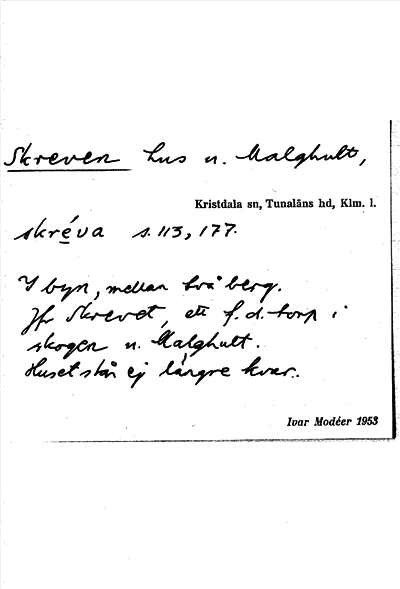 Skreven hus u. Malghult,
Kristdala sn, Tunaläns hd, Klm. l.
skréva s. 113, 177.
I byn, mellan två berg.
Jfr Skrevet, ett f.d. torp i
skogen u. Malghult.
Huset står ej längre kvar.
Ivar Modéer 1953